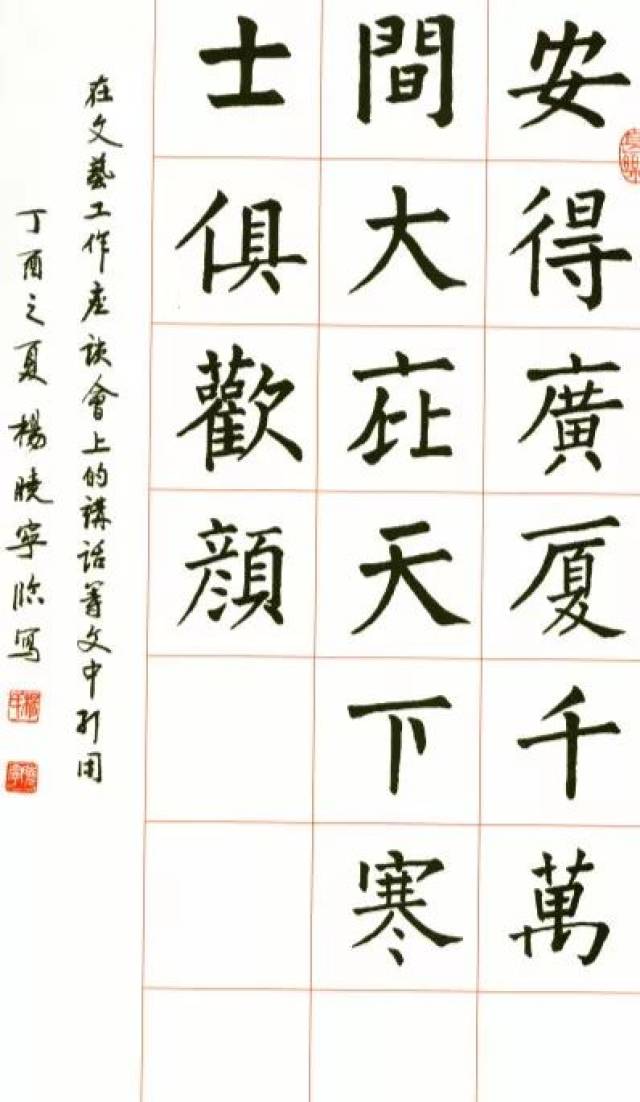 安得廣厦千萬
間大庇天下寒
士俱歡顔
在文藝工作座談會上的講話等文中引用
丁酉之夏楊曉寧臨寫